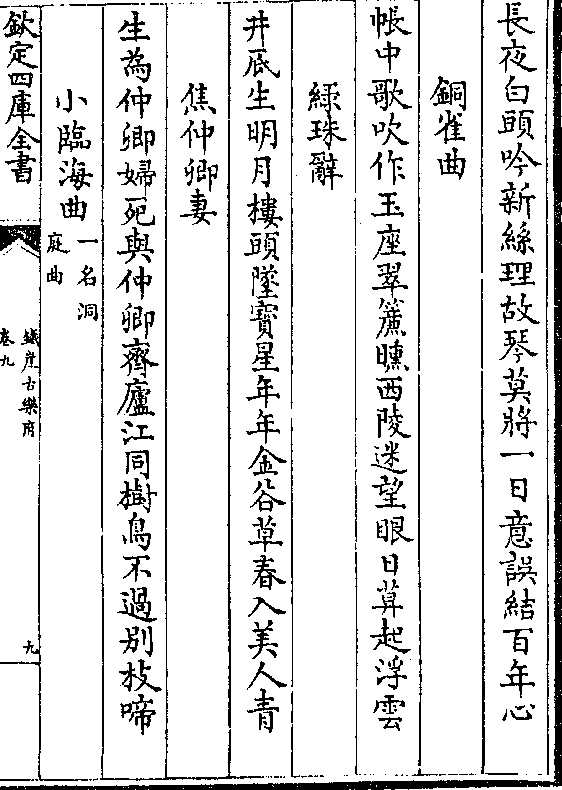 長夜白頭吟新絲理故琴莫將一日意誤結百年心
銅雀曲
帳中歌吹作玉座翠簾曛西陵迷望眼日暮起浮雲
緑珠辭
井底生明月樓頭墜寶星年年金谷草春入美人青
焦仲卿妻
生為仲卿婦死與仲卿齊廬江同樹鳥不過别枝啼
小臨海曲一名洞庭曲
欽定四庫全書
鐵崖古樂府
卷九
九